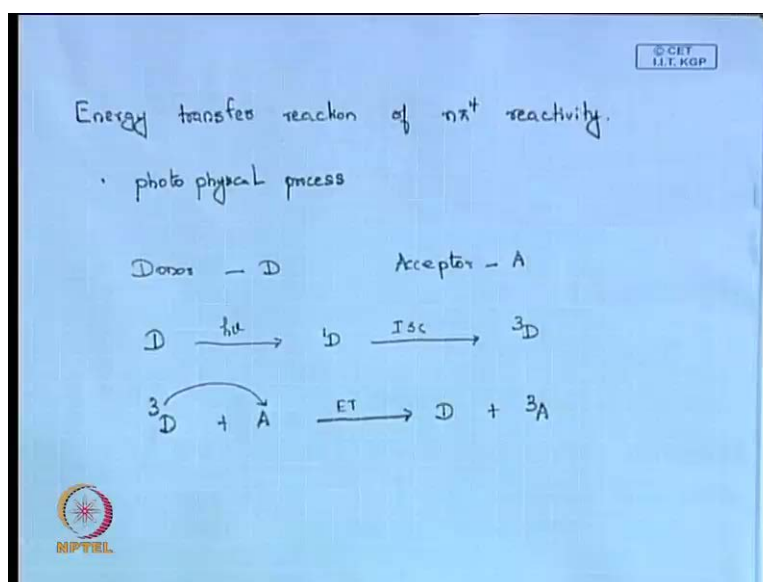 © CET
I.I.T. KGP
Energy transfer reaction of nπ* reactivity.
· photo physical process
Donor - D Acceptor - A
D hν ¹D ISC ³D
³D + A ET D + ³A
NPTEL